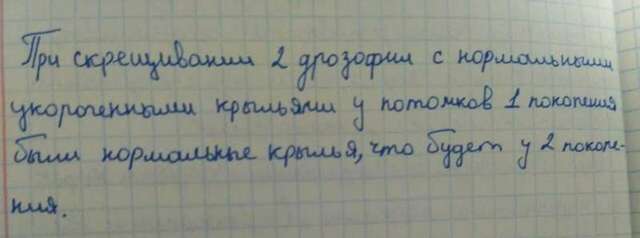 При скрещивании 2 дрозофил с нормальными
укороченными крыльями у потомков 1 поколения
были нормальные крылья, что будет у 2 поколе-
ния.